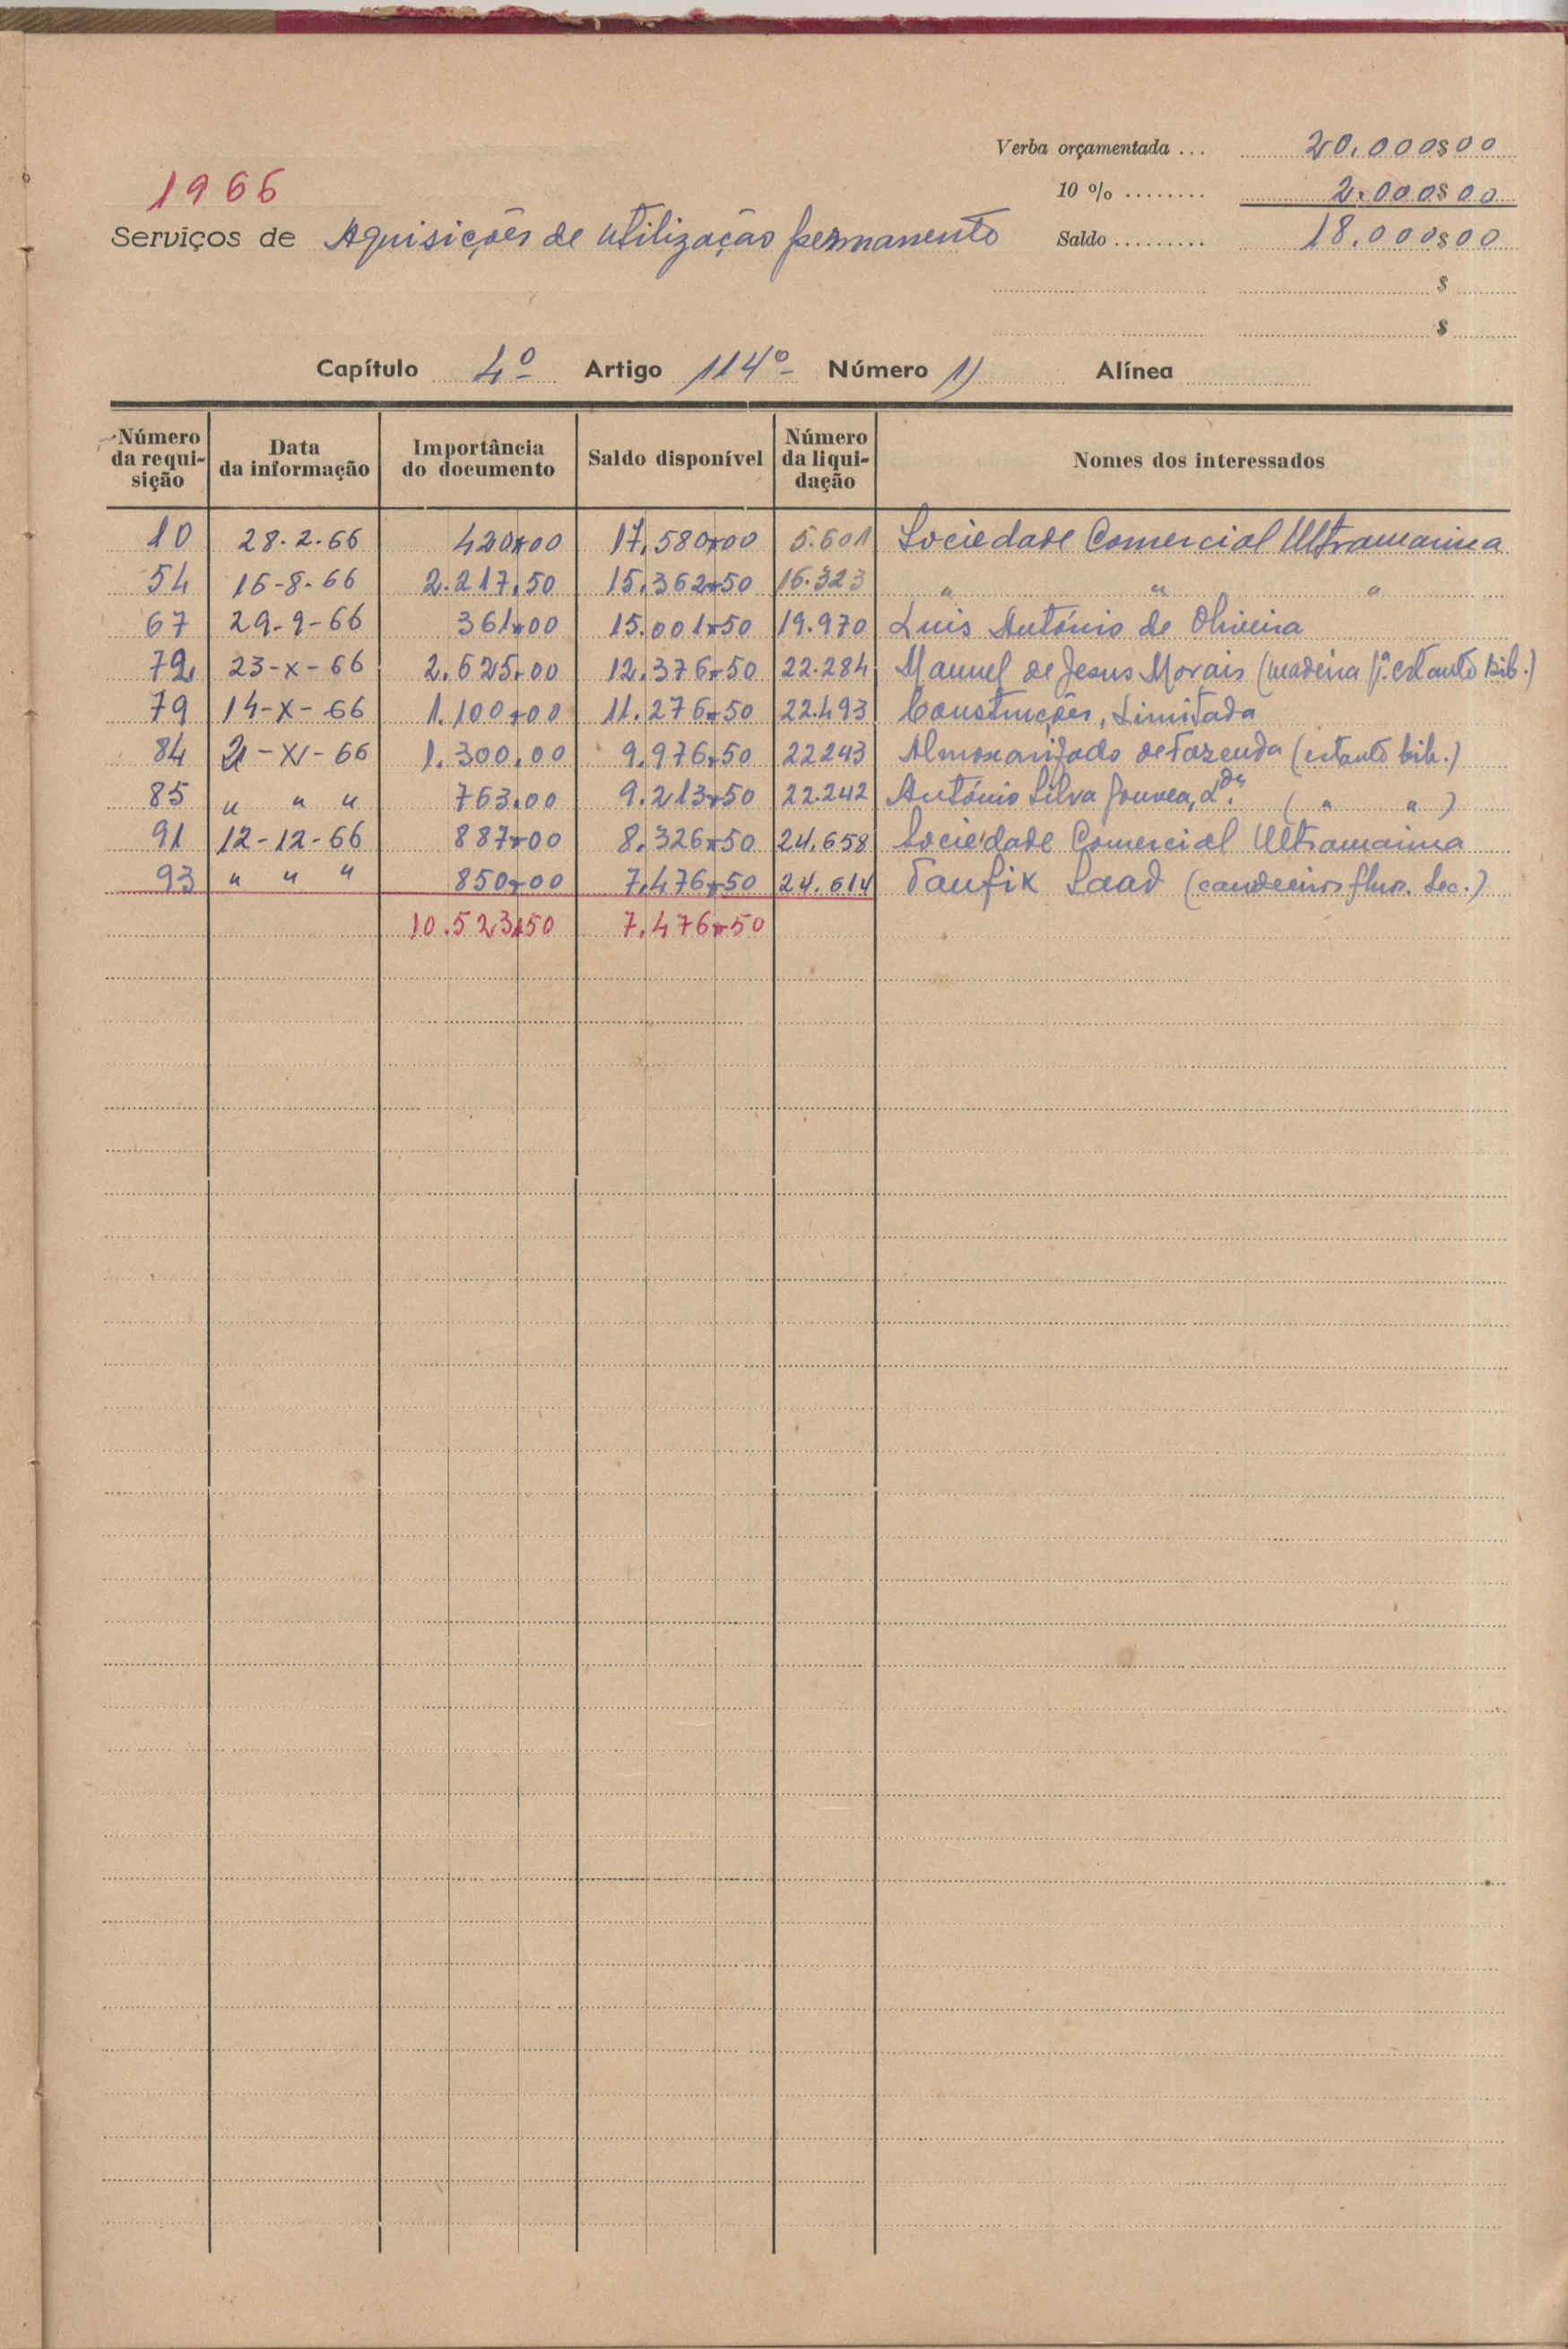 Verba orçamentada ... 20.000$00
1966
10 % ........ 2.000$00
Serviços de Aquisições de utilização permanente Saldo ......... 18.000$00
$
$
Capítulo 4º Artigo 114º Número 1) Alínea
Número da requisição Data da informação Importância do documento Saldo disponível Número da liquidação Nomes dos interessados
10 28.2.66 420$00 17.580$00 5.601 Sociedade Comercial Ultramarina
54 16-8-66 2.217,50 15.362$50 16.323 " " "
67 29-9-66 361$00 15.001$50 19.970 Luis António de Oliveira
72 23-X-66 2.625$00 12.376$50 22.284 Manuel de Jesus Morais (madeira p.ª estante bib.)
79 14-X-66 1.100$00 11.276$50 22.493 Construções, Limitada
84 21-XI-66 1.300,00 9.976$50 22243 Almoxarifado de Fazenda (estante bib.)
85 " " " 763$00 9.213$50 22.242 António Silva Gouvea, ( " " )
91 12-12-66 887$00 8.326$50 24.658 Sociedade Comercial Ultramarina
93 " " " 850$00 7.476$50 24.614 Taufik Saad (candeeiros fluo. Sec.)
10.523$50 7.476$50